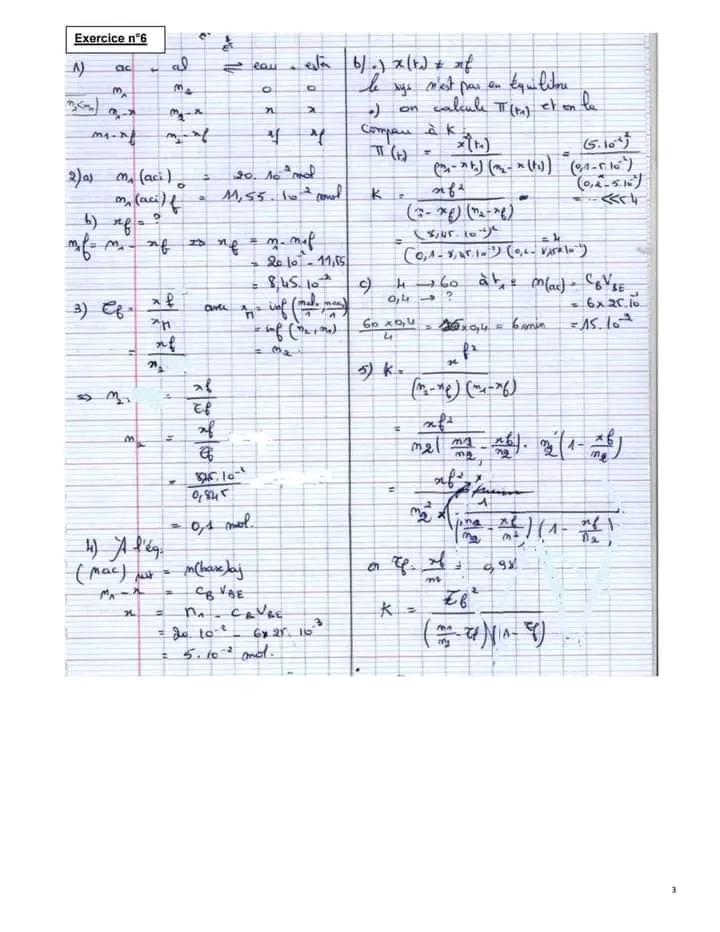 Exercice n°6
1) ac + al ⇌ eau + estér
m₁ m₂ 0 0
n₂<n₁ m₁-x m₂-x x x
m1-xf m₂-xf xf xf
2)a) m₁(aci)₀ = 20.10⁻² mol
m₁(aci)f = 11,55.10⁻² mol
b) xf = ?
n₁f = m₁ - xf ⇒ xf = n₁-n₁f
= 20.10⁻² - 11,55
= 8,45.10⁻²
3) τf = xf / xm avec
= inf(n₂, n₁)
= xf / n₂ = n₂
⇒ n₂ = xf / τf
n₂ = xf / τf
= 0,845
= 0,1 mol.
4) A l'éq.
(nac) = n(base)aj
m₁ - x = CB VBE
x = n₁ - CB VBE
= 20.10⁻² - 6x25.10⁻³
= 5.10⁻² mol.
b) .) x(t₁) ≠ xf
le sys n'est pas en équilibre
.) on calcule π(t₁) et on la
compare à K
π(t) = x²(t₁) / (m₁-xt₁)(m₂-x(t₁)) = (5.10⁻²)² / (0,1-5.10⁻²)(0,2-5.10⁻²)
K = xf² / (m₁-xf)(m₂-xf) = <<< 4
= (8,45.10⁻²)² / (0,1-8,45.10⁻²)(0,2-8,45x10⁻²) = 4
c) 4 → 60 à t₁ = n(ac) = CB VBE
0,4 → ? = 6x25.10⁻³
60x0,4 / 4 = x0,4 = 6min = 15.10⁻²
5) K = xf² / (m₂-xf)(m₁-xf)
= xf² / n2(n1/n2 - xf/n2).n2(1 - xf/n2)
= xf² / n2² x 1 / (n1/n2 - xf/n2)(1 - xf/n2)
or τf = xf/n2 =
K = τf² / (n1/n2 - τf)(1 - τf)
3